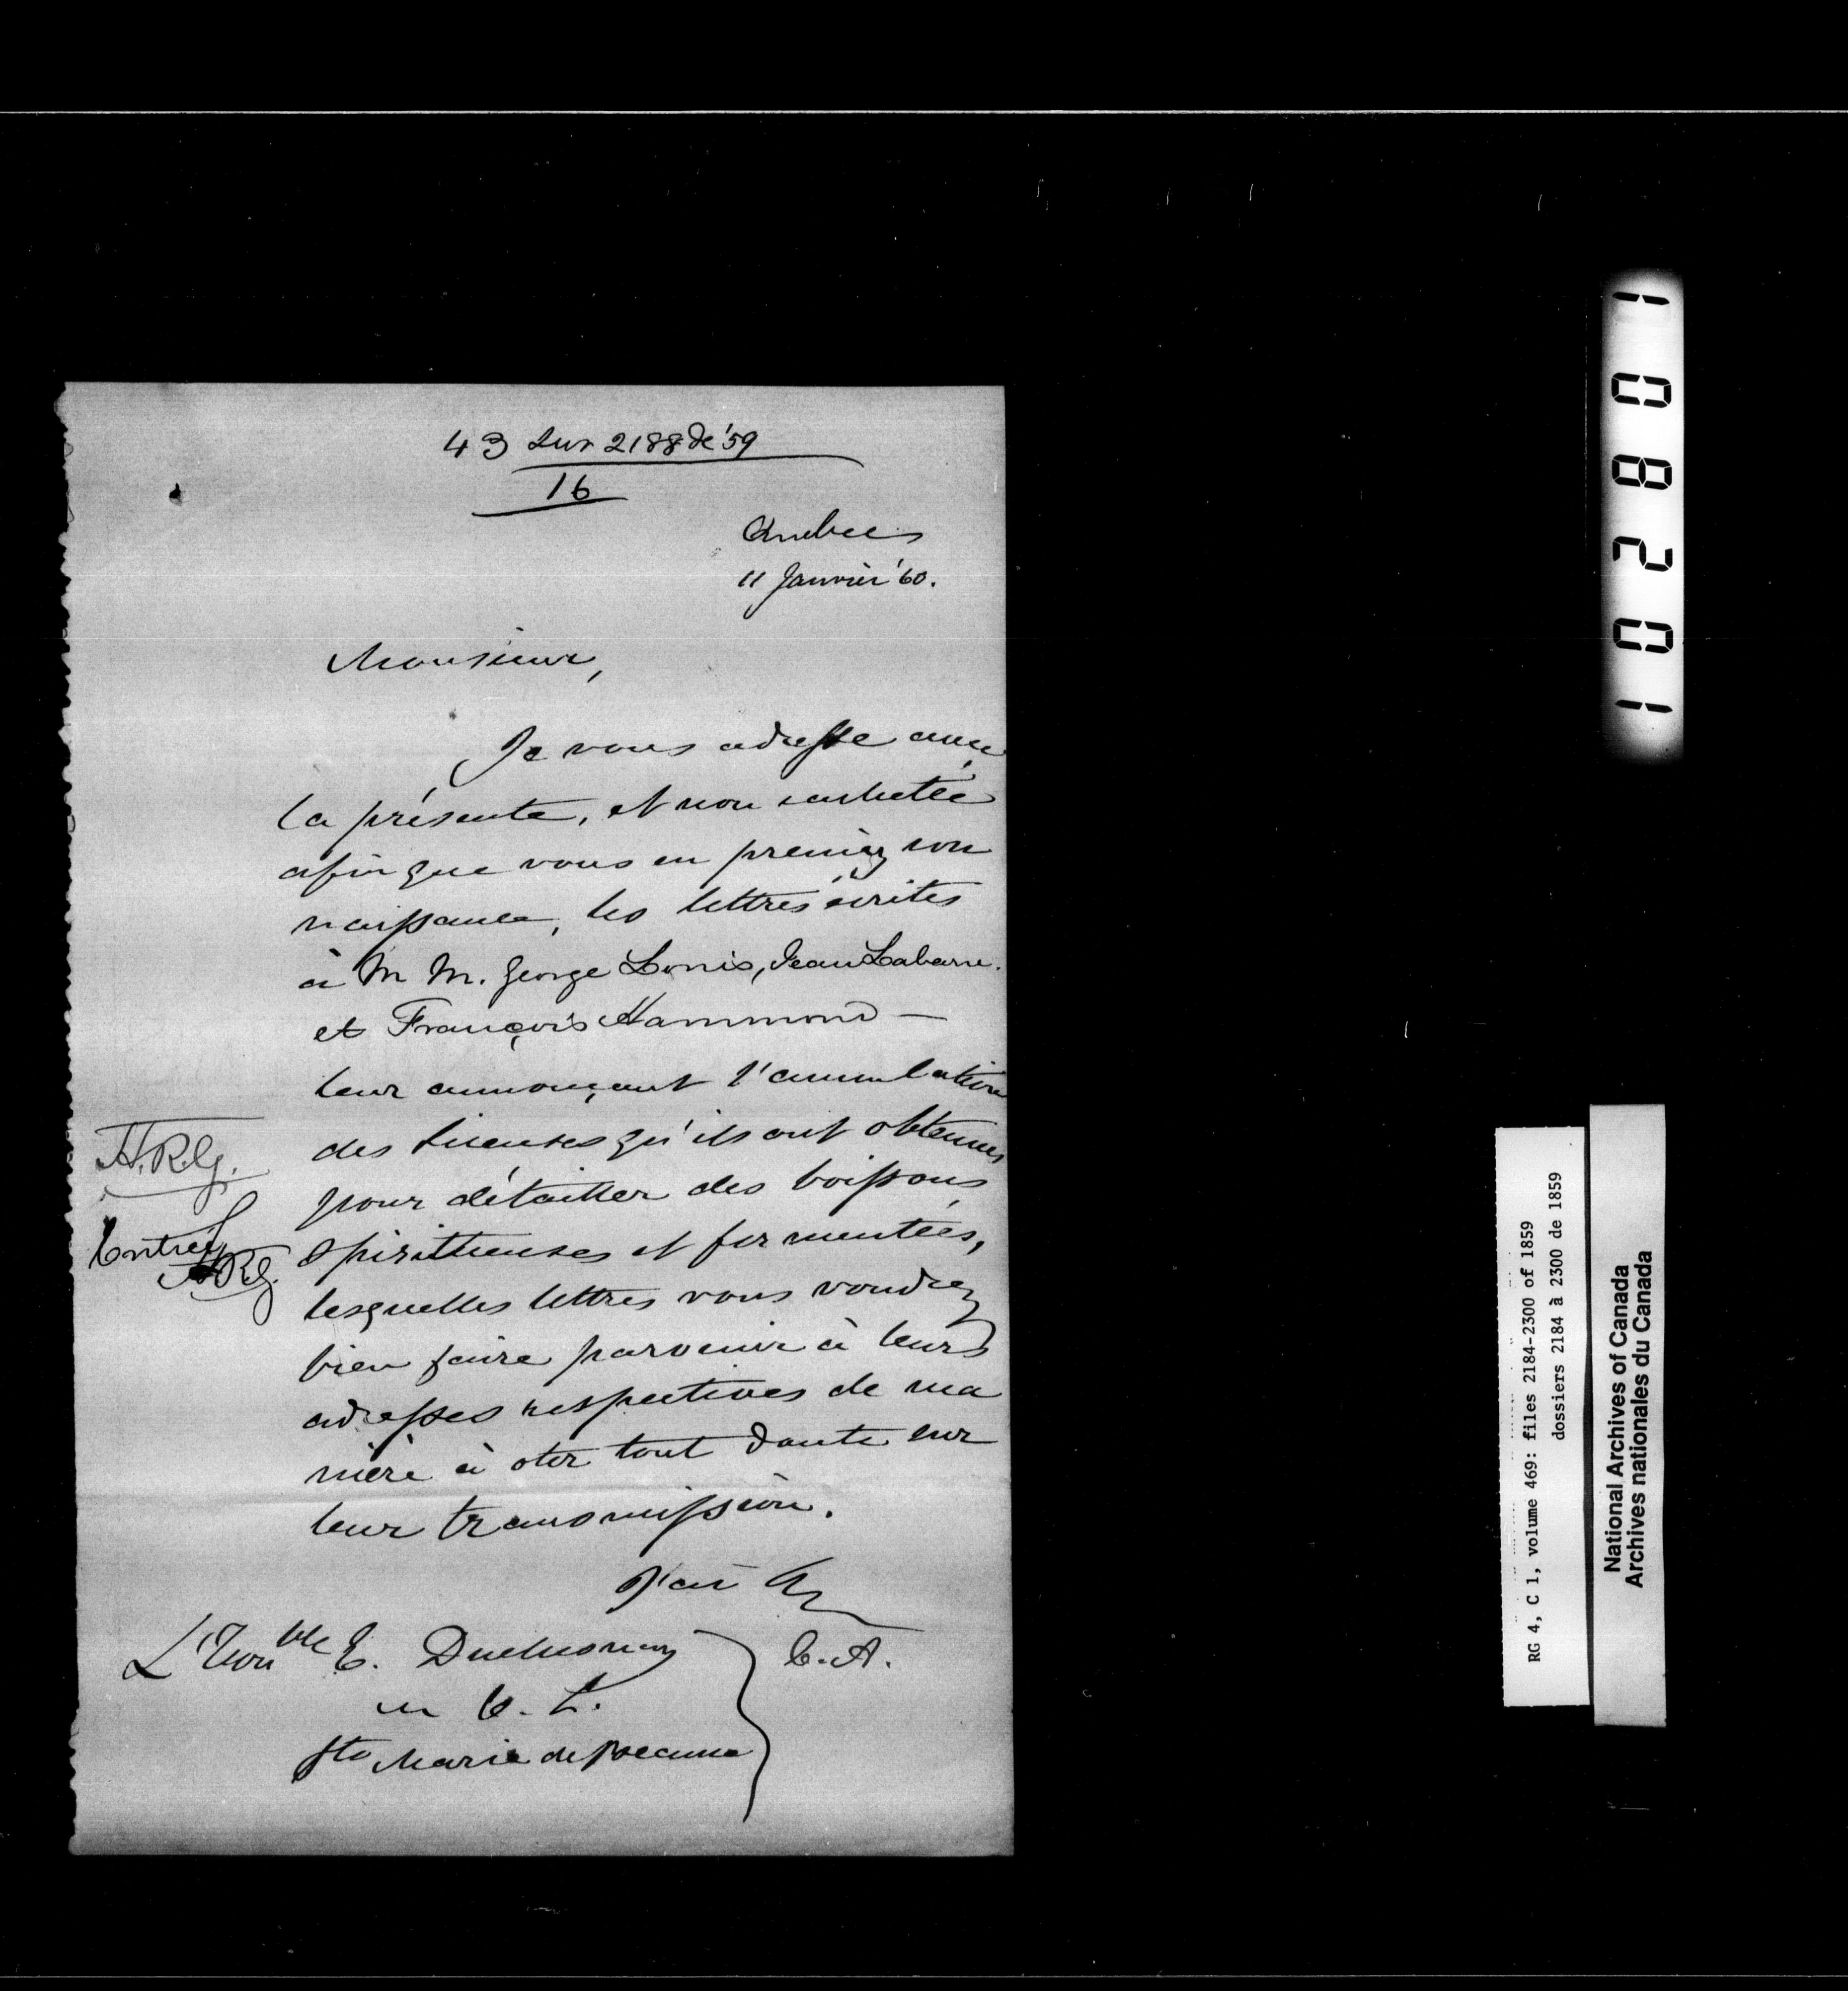 43 sur 2188 de '59
16
Quebec
11 Janvier '60.
Monsieur,
Je vous adresse avec
la présente, et non cachetée
afin que vous en preniez con
naissance, les lettres écrites
à M M. George Lonis, Jean Labarre.
et François Hammond —
leur annonçant l'annulation
des licenses qu'ils ont obtenues
pour détailler des boissons
spiritueuses et fermentées,
lesquelles lettres vous voudrez
bien faire parvenir à leurs
adresses respectives de ma
nière à oter tout doute sur
leur transmission.
H.R.G.
Entrée
H.R.G.
J'ai &c
C. A.
L'Honble E. Duchesnay
m C. L.
Ste Marie de Beauce
1 0 8 2 0 1
RG 4, C 1, volume 469: files 2184-2300 of 1859
dossiers 2184 à 2300 de 1859
National Archives of Canada
Archives nationales du Canada